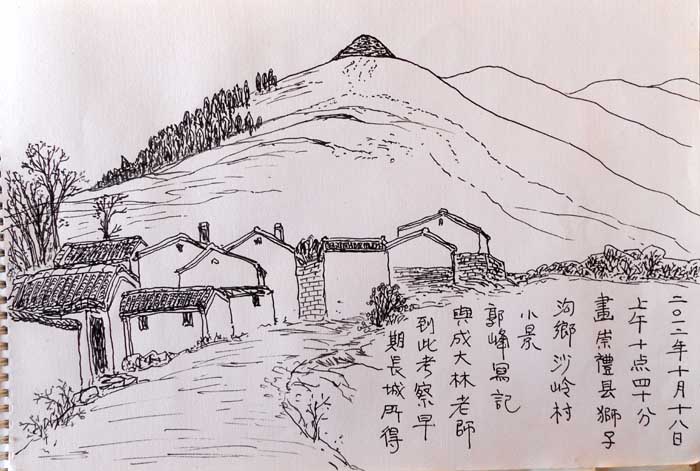 二〇二年十月十八日
上午十点四十分
畫崇禮县獅子
沟鄉沙岭村
小景
郭峰寫記
與成大林老師
到此考察早
期長城所得